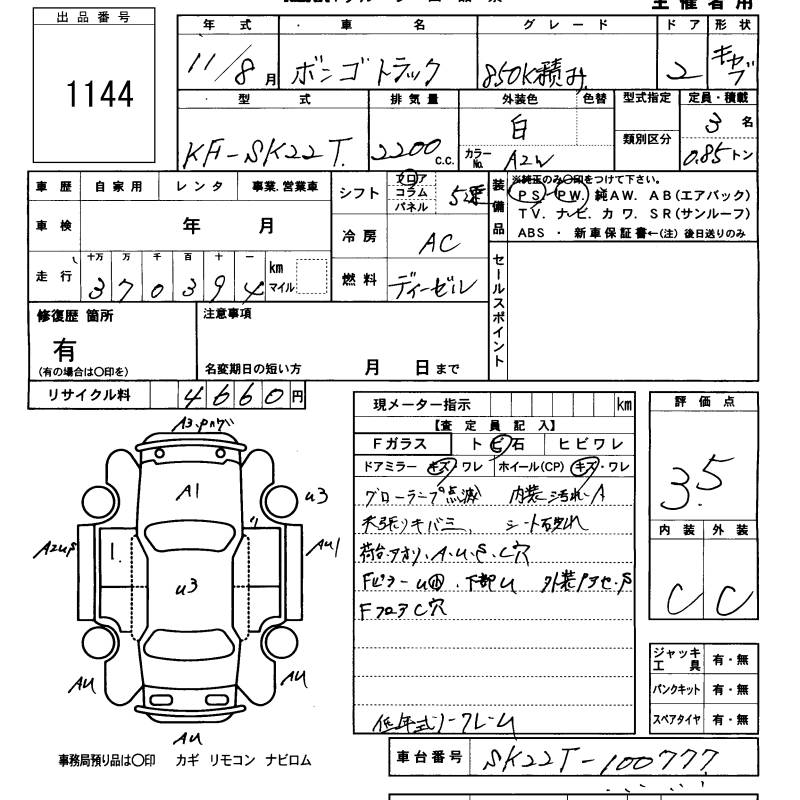 出品番号
1144
年式 車名 グレード ドア 形状
11/8月 ボンゴトラック 850K積み 2 キャブ
型式 排気量 外装色 色替 型式指定 定員・積載
KF-SK22T 2200c.c. 白 類別区分 3名
カラーNo. A2W 0.85トン
車歴 自家用 レンタ 事業.営業車
シフト フロア コラム パネル 5速
装備品 ※純正のみ〇印をつけて下さい。
PS. PW. 純AW. AB(エアバック)
TV. ナビ. カワ. SR(サンルーフ)
ABS ・ 新車保証書←(注) 後日送りのみ
車検 年 月
冷房 AC
走行 十万 万 千 百 十 一
370394 km マイル
燃料 ディーゼル
セールスポイント
修復歴 箇所
有
(有の場合は〇印を)
注意事項
名変期日の短い方 月 日まで
リサイクル料 4660円
現メーター指示 km
【査定員記入】
Fガラス トビ石 ヒビワレ
ドアミラー キズ・ワレ ホイール(CP) キズ・ワレ
グローランプ点滅 内装汚れ.A
天張りキバミ、シート破れ
荷台.アオリ.A.U.S.C穴
下部U
FフロアC穴
評価点
3.5
内装 外装
C C
ジャッキ工具 有・無
パンクキット 有・無
スペアタイヤ 有・無
車台番号 SK22T-100777
A1
U3
U3
AU1
1
AU
AU
AU
事務局預り品は〇印 カギ リモコン ナビロム